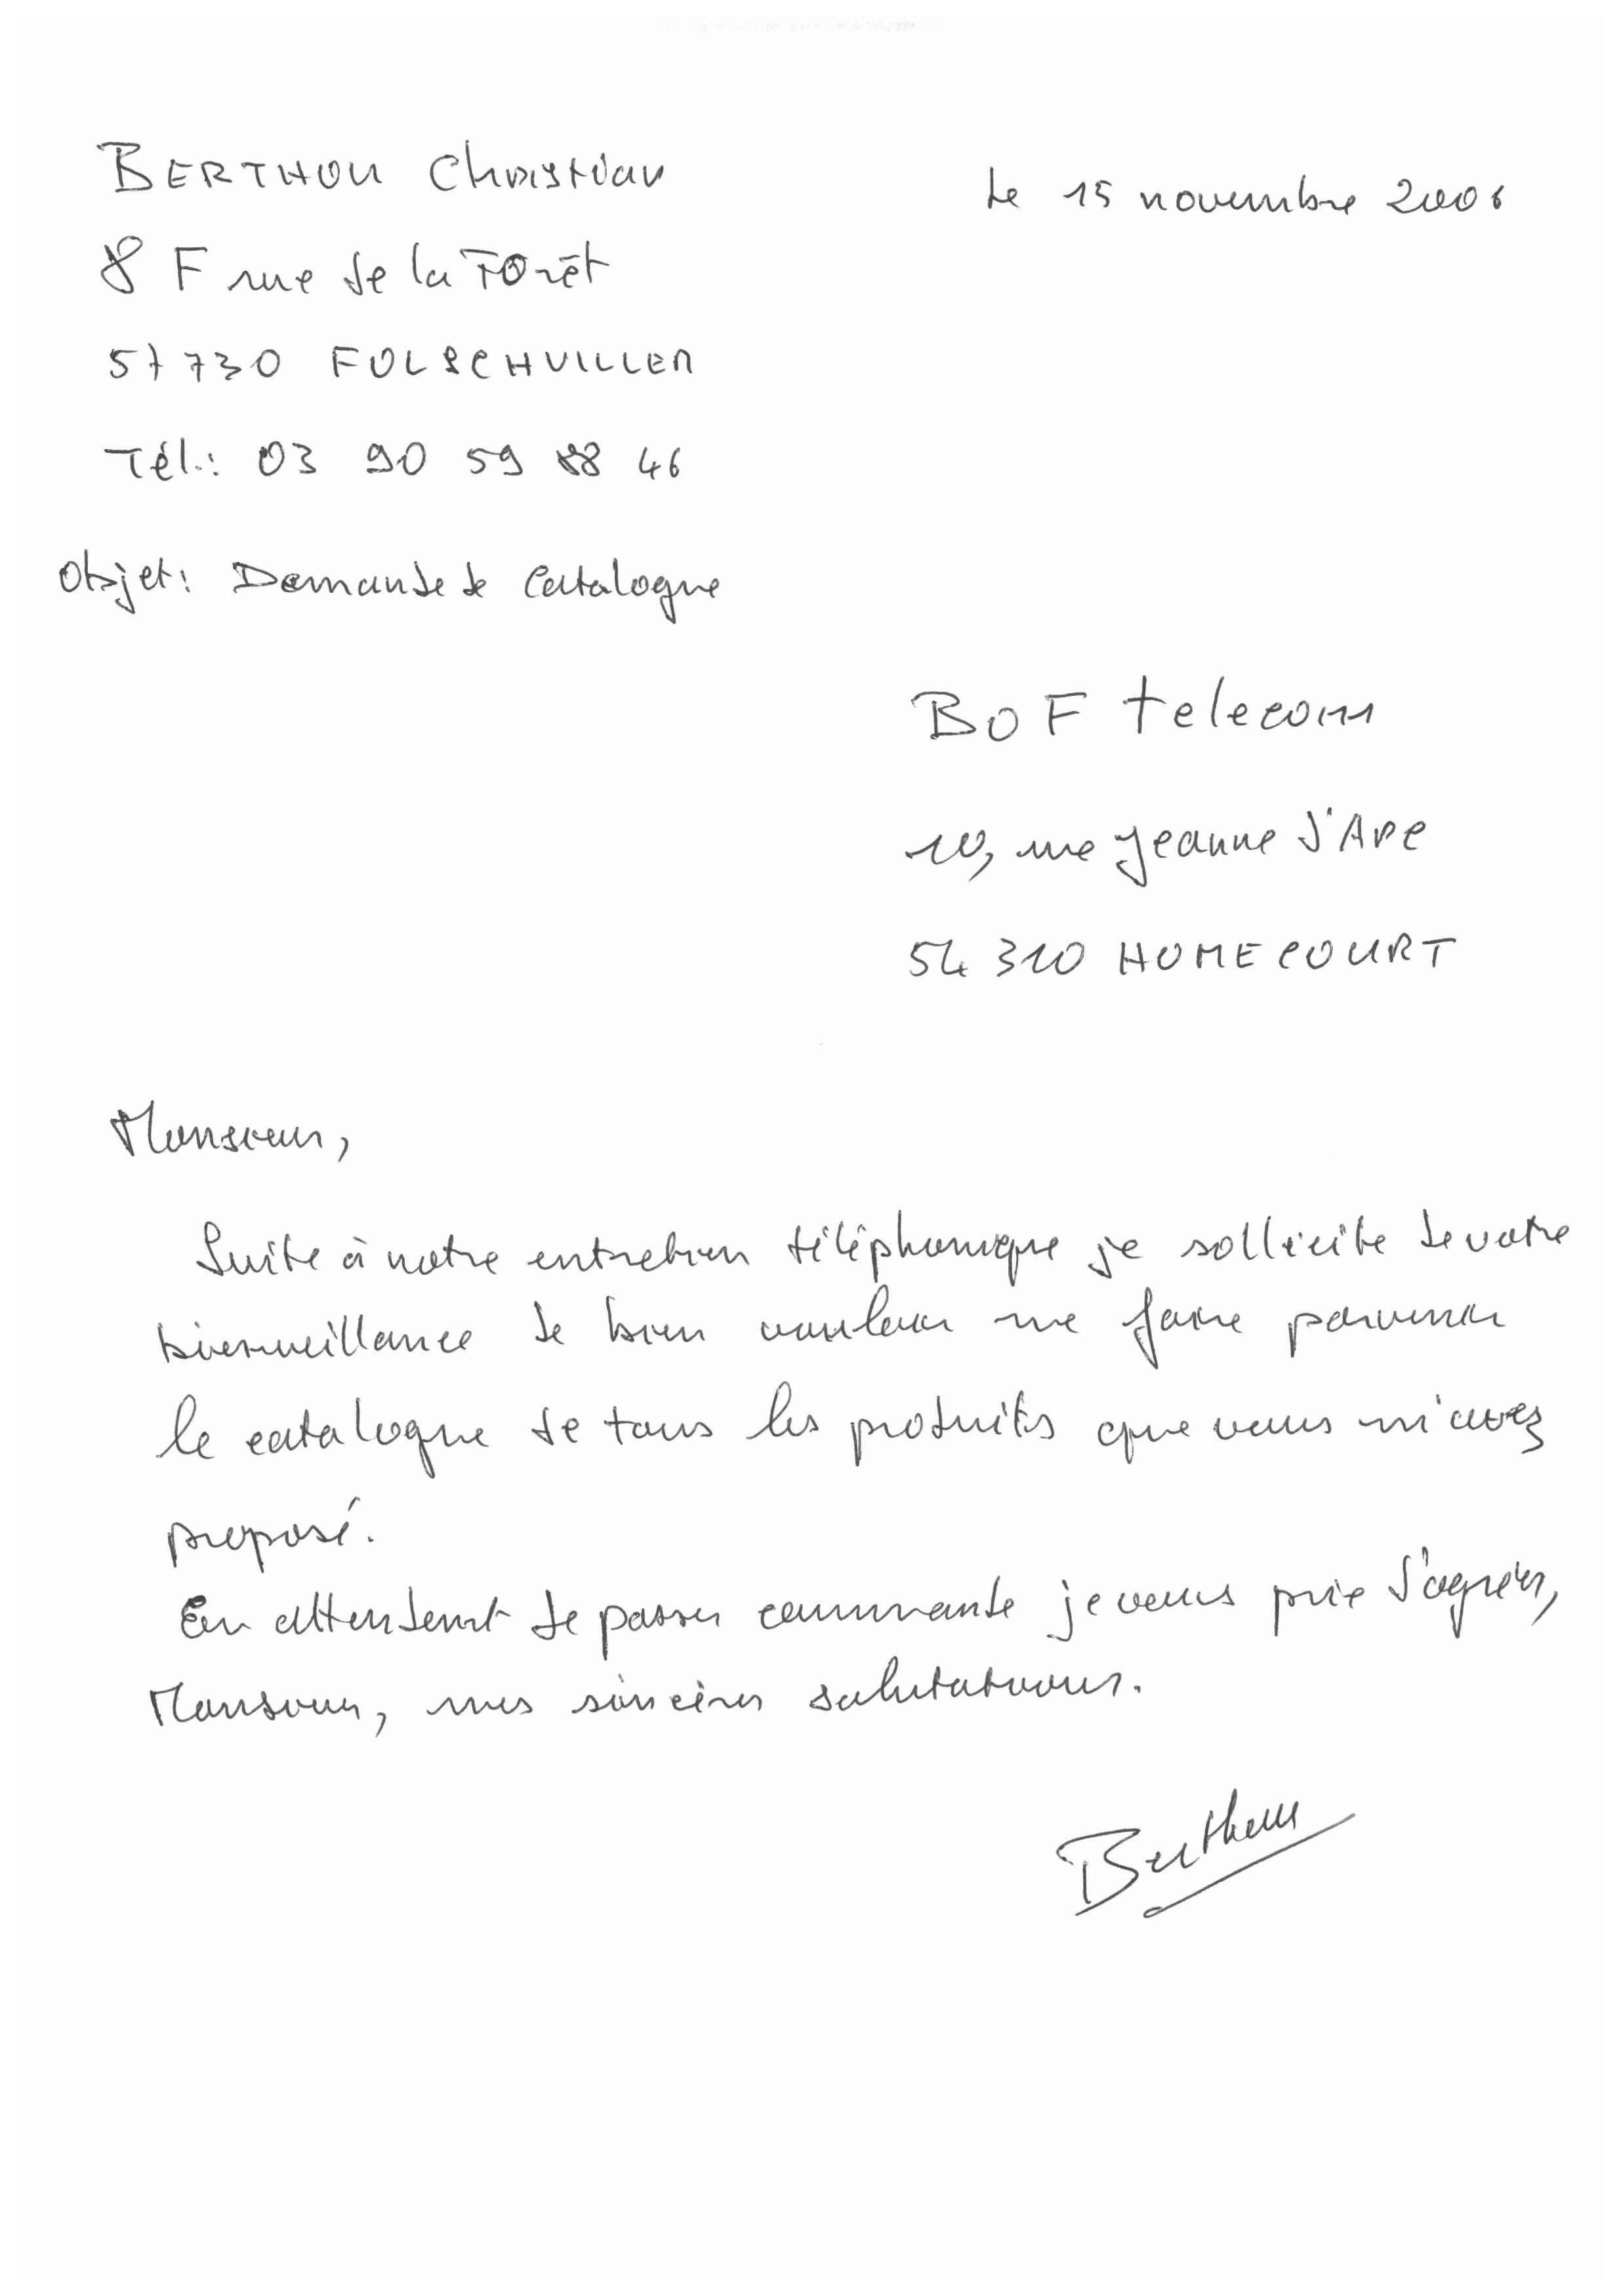 BERTHOU Christian
Le 15 novembre 2006
8 F rue de la FOrêt
57730 FOLSCHVILLER
Tél.: 03 90 59 88 46
Objet: Demande de Catalogue
BOF telecom
10, rue Jeanne d'Arc
54 310 HOMECOURT
Monsieur,
Suite à notre entretien téléphonique je sollicite de votre
bienveillance de bien vouloir me faire parvenir
le catalogue de tous les produits que vous m'avez
proposé.
En attendant de passer commande je vous prie d'agréer,
Monsieur, mes sincères salutations.
Berthou